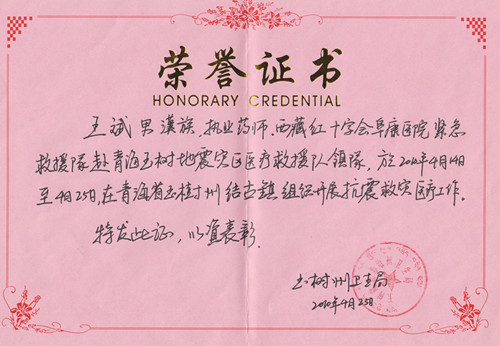 荣誉证书
HONORARY CREDENTIAL
王斌 男 漢族，执业药师，西藏红十字会阜康医院紧急
救援隊赴青海玉树地震灾区医疗救援队領隊，於2010年4月14日
至4月25日，在青海省玉樹州结古鎮组织开展抗震救灾医疗工作。
特发此证，以资表彰。
玉树州卫生局
2010年4月25日